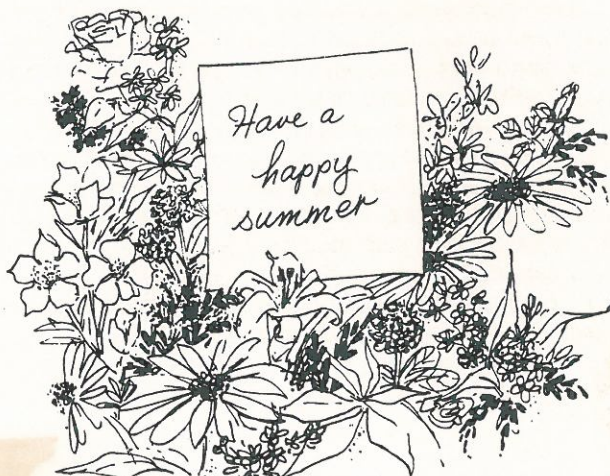 Have a
happy
summer